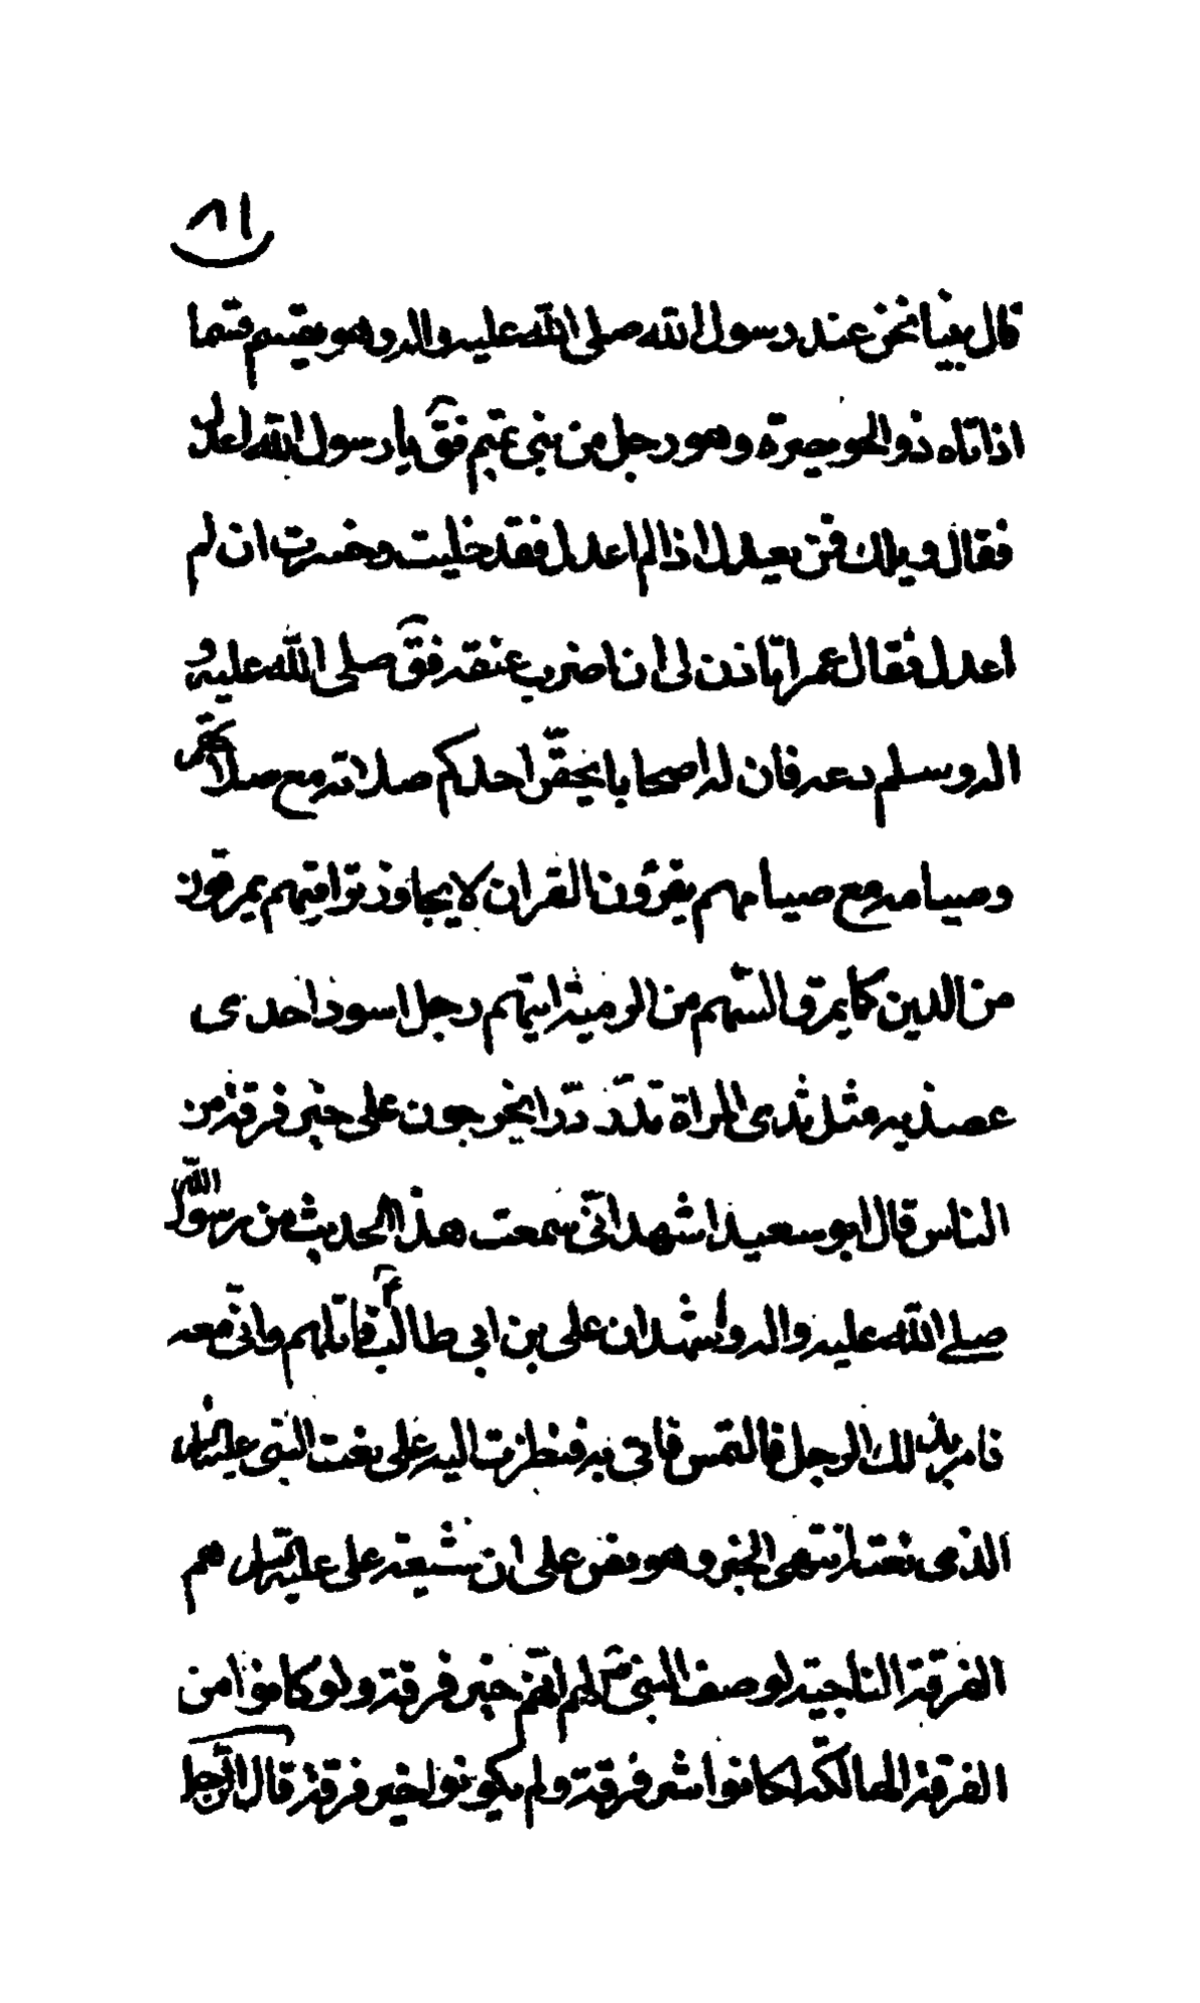 ٨١
قال بينا نحن عند رسول الله صلى الله عليه واله وهو يقسم قسما
اذ اتاه ذو الخويصرة وهو رجل من بنى تميم فق يا رسول الله اعدل
فقال ويلك فمن يعدل اذا لم اعدل فقد خبت وخسرت ان لم
اعدل فقال عمر اتاذن لى ان اضرب عنقه فق صلى الله عليه و
اله وسلم دعه فان له اصحابا يحقر احدكم صلاته مع صلاتهم
وصيامه مع صيامهم يقرؤن القران لا يجاوز تراقيهم يمرقون
من الدين كما يمرق السهم من الرمية ايتهم رجل اسود احدى
عضديه مثل ثدى المراة تدردر يخرجون على خير فرقة من
الناس قال ابو سعيد اشهد انى سمعت هذا الحديث من رسول الله
صلى الله عليه واله واشهد ان على بن ابى طالب ع قاتلهم وانى معه
فامر بذلك الرجل فالتمس فاتى به فنظرت اليه على نعت النبى عليه السلام
الذى نعته انتهى الخبر وهو نص على ان شيعة على عليه السلام هم
الفرقة الناجية لوصف النبى ص لهم انهم خير فرقة ولو كانوا من
الفرقة الهالكة لكانوا شر فرقة ولم يكونوا خير فرقة قال الرجل